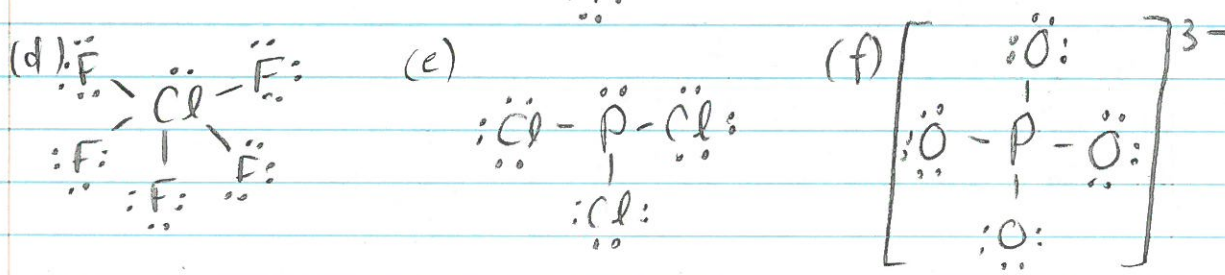 (d) :F: Cl F: :F: :F: F:
(e) :Cl - P - Cl: :Cl:
(f) [:O: :O - P - O: :O:]3-